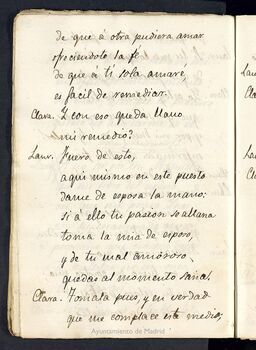 de que á otra pudiera amar
ofreciendote la fé
de que á ti sola amaré,
es facil de remediar.
Clara. Y con eso queda llano
mi remedio?
Laur. Fuera de esto,
aqui mismo en este puesto
dame de esposa la mano:
si á ello tu pasion se allana
toma la mia de esposo,
y de tu mal amoroso,
quedas al momento sana.
Clara. Tomala pues, y en verdad
que me complace este medio;
Ayuntamiento de Madrid
Lau
Laur